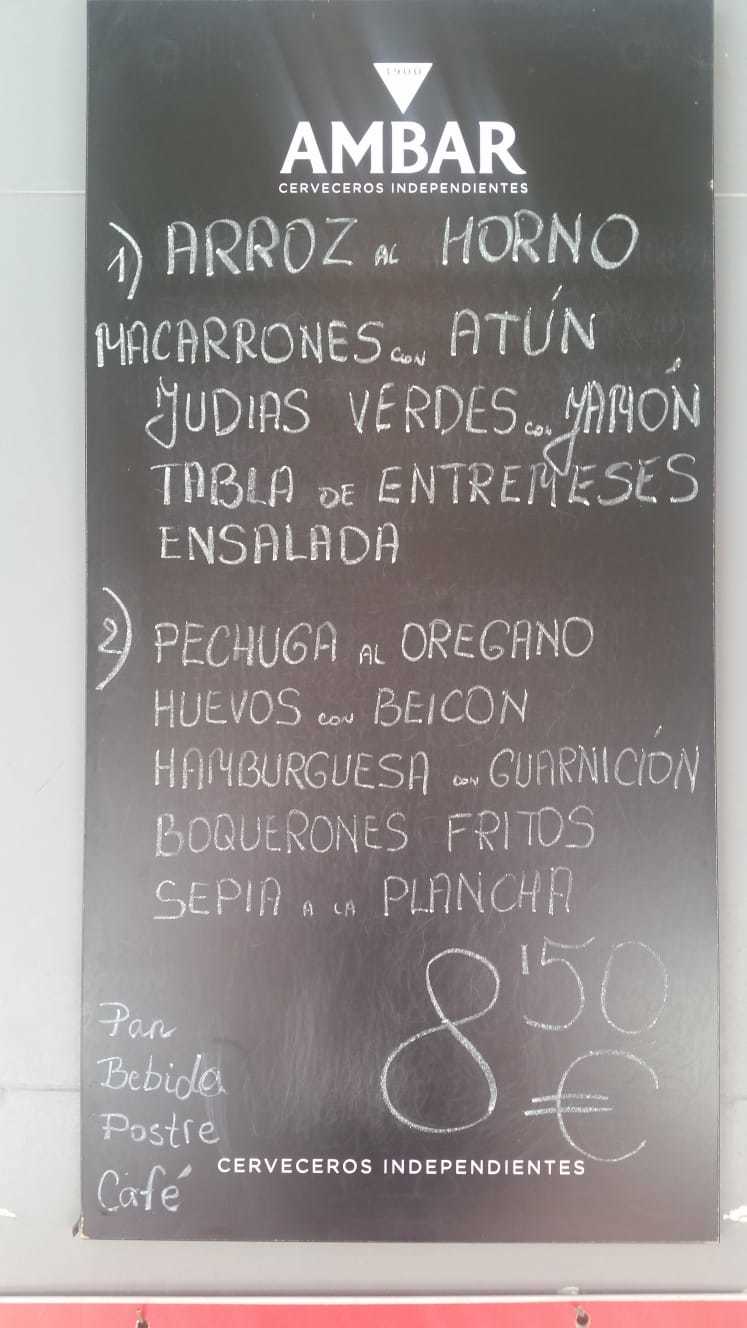 1900
AMBAR
CERVECEROS INDEPENDIENTES
1) ARROZ AL HORNO
MACARRONES con ATÚN
JUDIAS VERDES con JAMÓN
TABLA DE ENTREMESES
ENSALADA
2) PECHUGA AL OREGANO
HUEVOS con BEICON
HAMBURGUESA con GUARNICIÓN
BOQUERONES FRITOS
SEPIA A LA PLANCHA
8'50
€
Pan
Bebida
Postre
Café
CERVECEROS INDEPENDIENTES